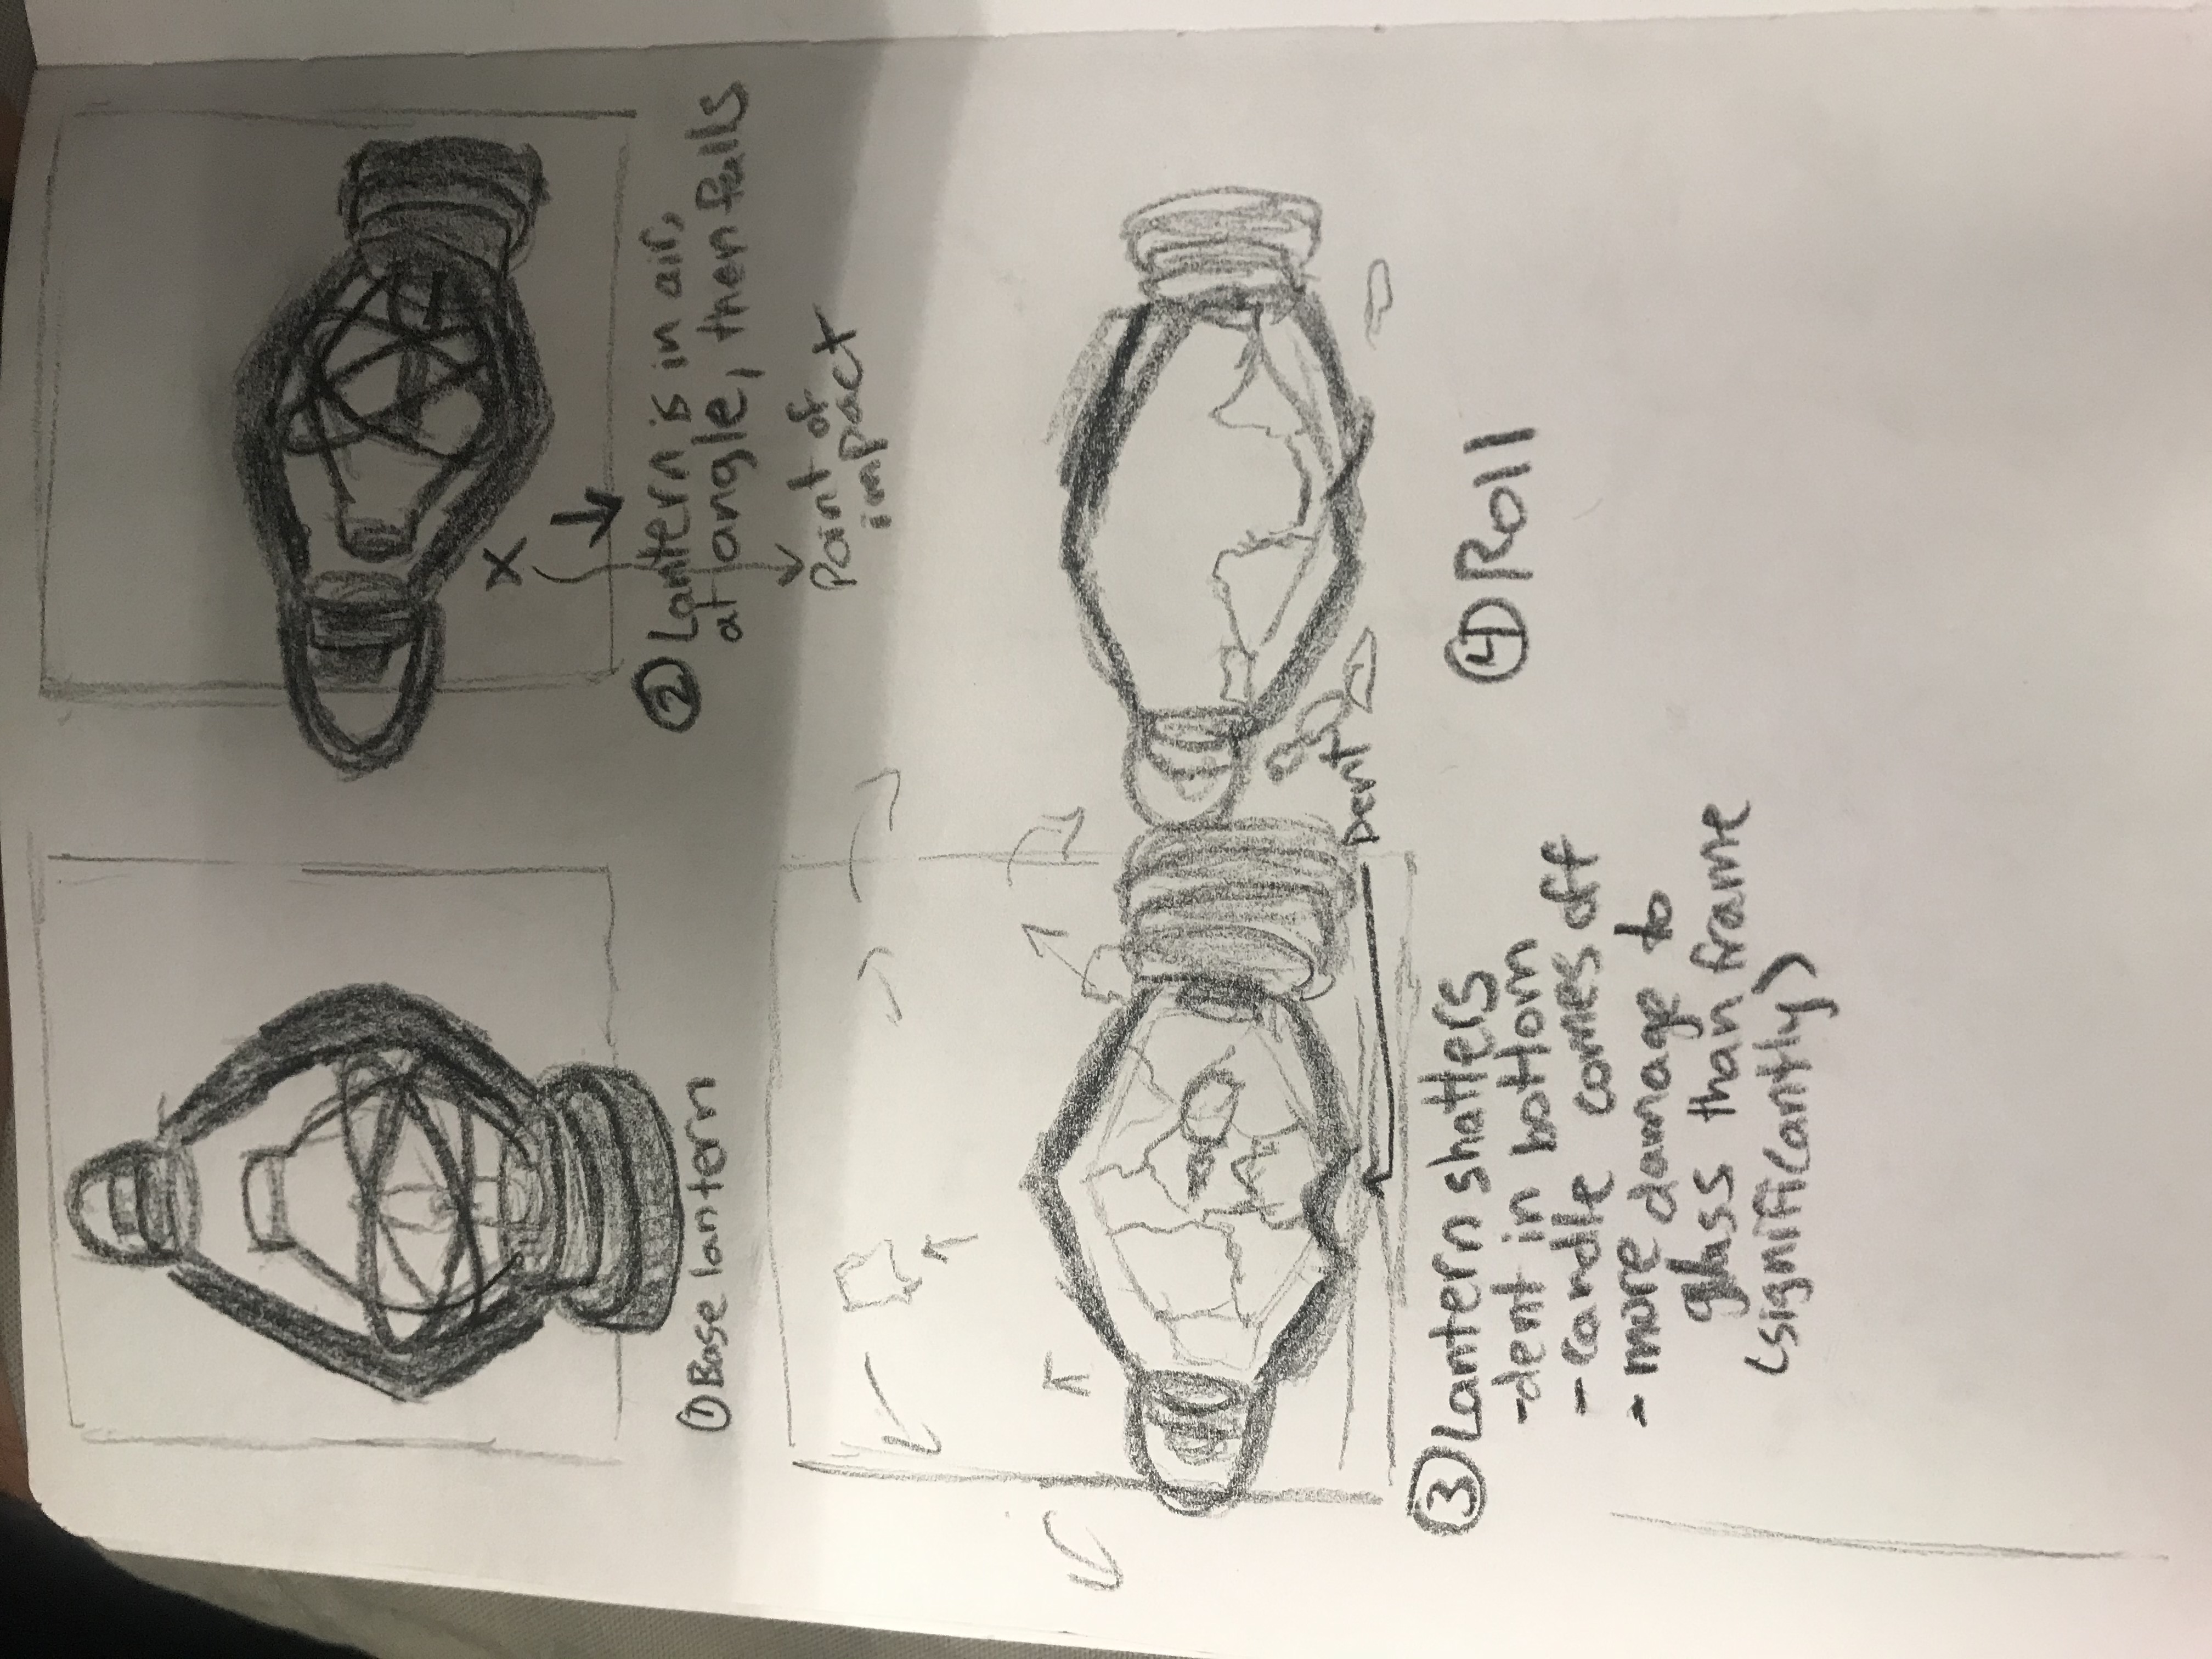 ① Base lantern
② Lantern is in air,
at angle, then falls
x
Point of
impact
Dent
③ Lantern shatters
-dent in bottom
- candle comes off
- more damage to
glass than frame
(significantly)
④ Roll